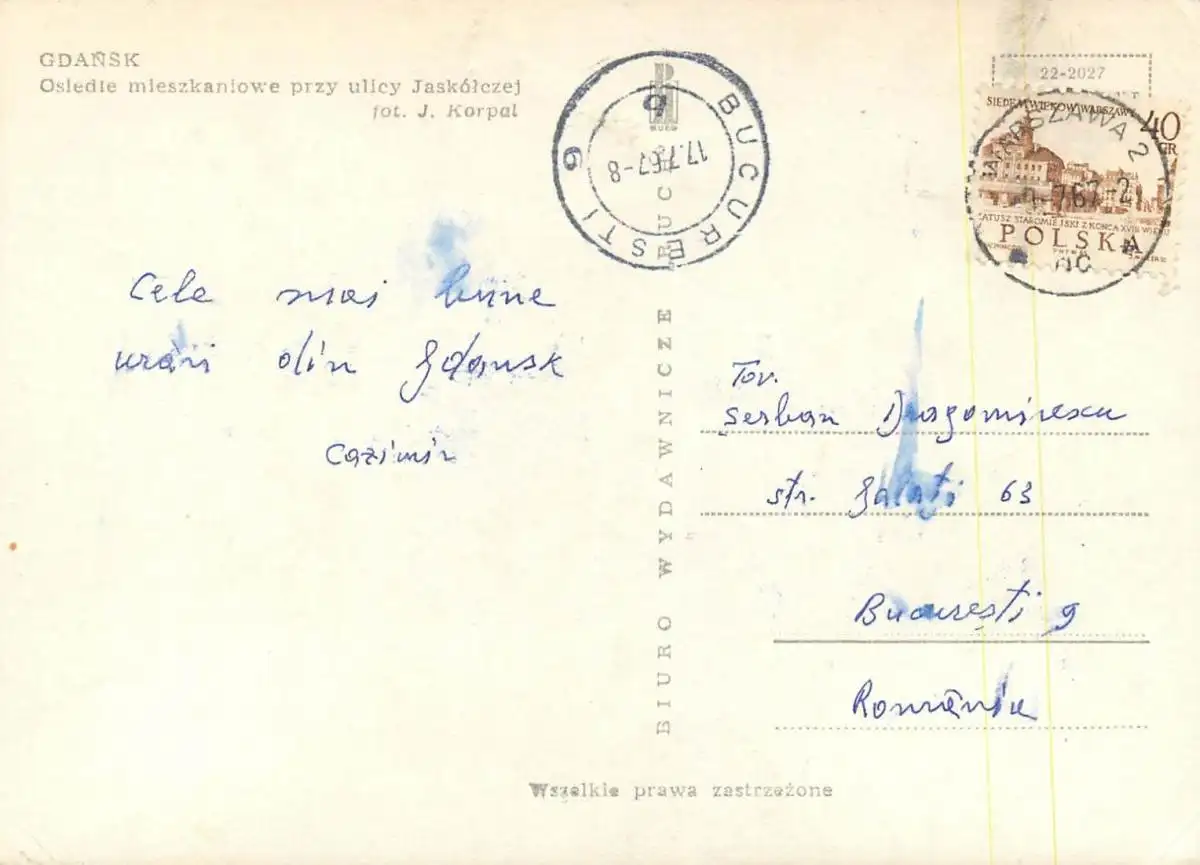 GDAŃSK
Osiedle mieszkaniowe przy ulicy Jaskółczej
fot. J. Korpal
22-2027
SIEDEM WIEKÓW WARSZAWY
40
GR
RATUSZ STAROMIEJSKI Z KOŃCA XVIII WIEKU
POLSKA
WARSZAWA 2
7.67-21
BUCURESTI 9
17.7.67-8
Cele mai bune
urări din Gdansk
Cazimir
Tov.
Serban Dragomirescu
str. Galați 63
București 9
România
BIURO WYDAWNICZE RUCH
Wszelkie prawa zastrzeżone